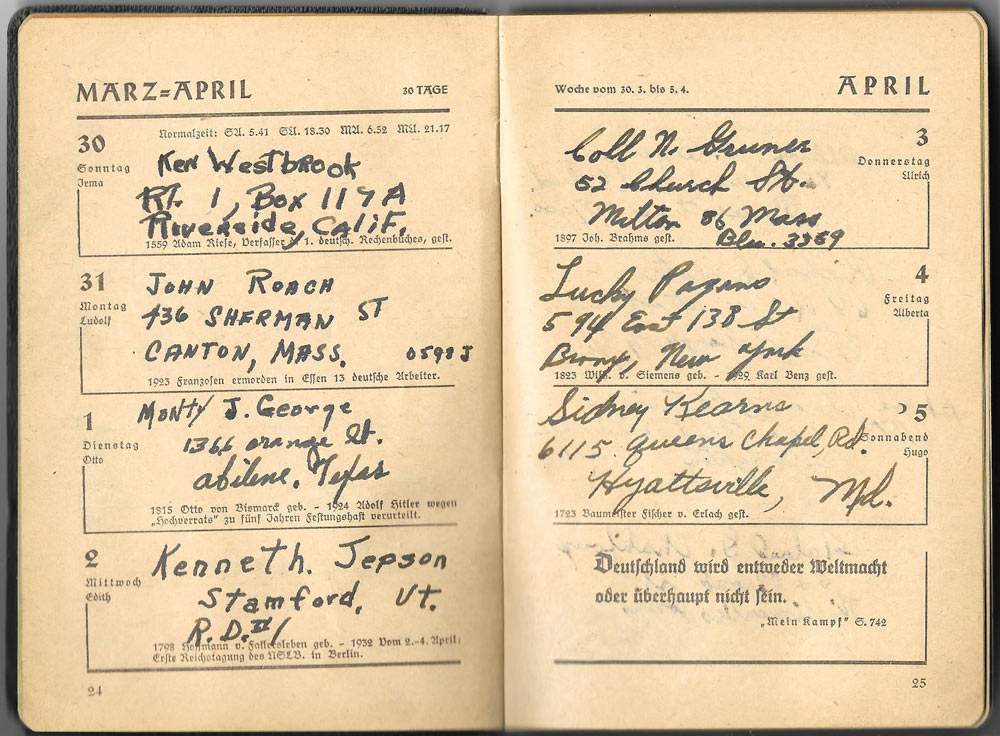 MÄRZ=APRIL 30 TAGE
30
Sonntag
Irma
Normalzeit: SA. 5.41 SU. 18.30 MA. 6.52 MU. 21.17
Ken Westbrook
Rt. 1, Box 117 A
Riverside, Calif.
1559 Adam Riese, Verfasser d. 1. deutsch. Rechenbuches, gest.
31
Montag
Ludolf
JOHN ROACH
436 SHERMAN ST
CANTON, MASS. 0598 J
1923 Franzosen ermorden in Essen 13 deutsche Arbeiter.
1
Dienstag
Otto
Monty J. George
1366 orange St.
abilene, Texas
1815 Otto von Bismarck geb. - 1924 Adolf Hitler wegen
„Hochverrats" zu fünf Jahren Festungshaft verurteilt.
2
Mittwoch
Edith
Kenneth. Jepson
Stamford, Vt.
R.D. #1
1798 Hoffmann v. Fallersleben geb. - 1932 Vom 2.-4. April:
Erste Reichstagung des NSLB. in Berlin.
24
Woche vom 30. 3. bis 5. 4. APRIL
3
Donnerstag
Ulrich
Coll N. Gruner
52 Church St.
Milton 86 Mass
Blu. 3359
1897 Joh. Brahms gest.
4
Freitag
Alberta
Lucky Pagano
594 East 138 St
Bronx, New York
1823 Wilh. v. Siemens geb. - 1929 Karl Benz gest.
5
Sonnabend
Hugo
Sidney Kearns
6115 Queens Chapel, Rd.
Hyattsville, Md.
1723 Baumeister Fischer v. Erlach gest.
Deutschland wird entweder Weltmacht
oder überhaupt nicht sein.
„Mein Kampf" S. 742
25